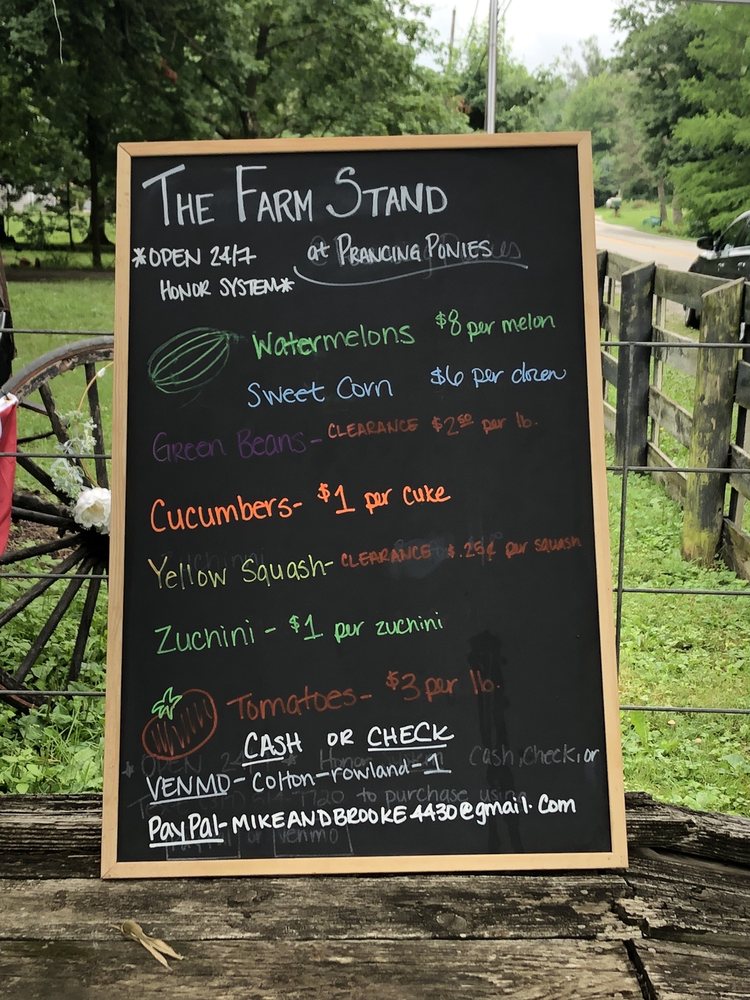 THE FARM STAND
*OPEN 24/7 at PRANCING PONIES
HONOR SYSTEM*
Watermelons $8 per melon
Sweet Corn $6 per dozen
Green Beans - CLEARANCE $2.50 per lb.
Cucumbers- $1 per cuke
Yellow Squash- CLEARANCE $.25¢ per squash
Zuchini - $1 per zuchini
Tomatoes- $3 per lb.
CASH OR CHECK
Cash, Check, or
VENMO- Colton-rowland-1
to purchase using
PayPal- MIKEANDBROOKE4430@gmail.com
venmo